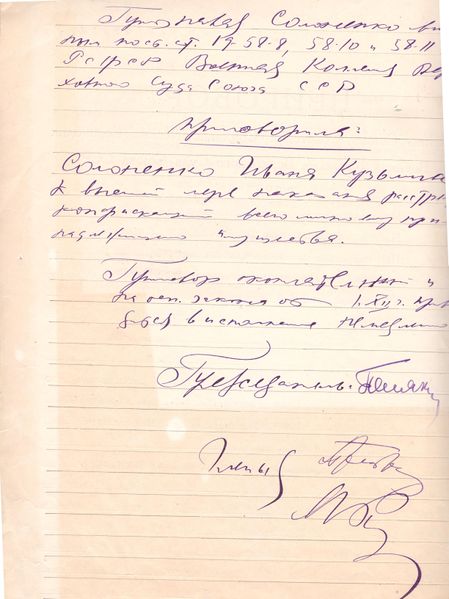 Признавая Солоненко ви
ным по ст. ст. 17-58-8, 58-10 и 58-11
РСФСР Военная Коллегия Вер
ховного Суда Союза ССР
приговорила:
Солоненко Ивана Кузьмича
к высшей мере наказания расстре
конфискацией всего лично ему при
надлежащего имущества.
Приговор окончательный и
на осн. закона от 1.XII. при
в исполнение немедленно
Председатель
Члены